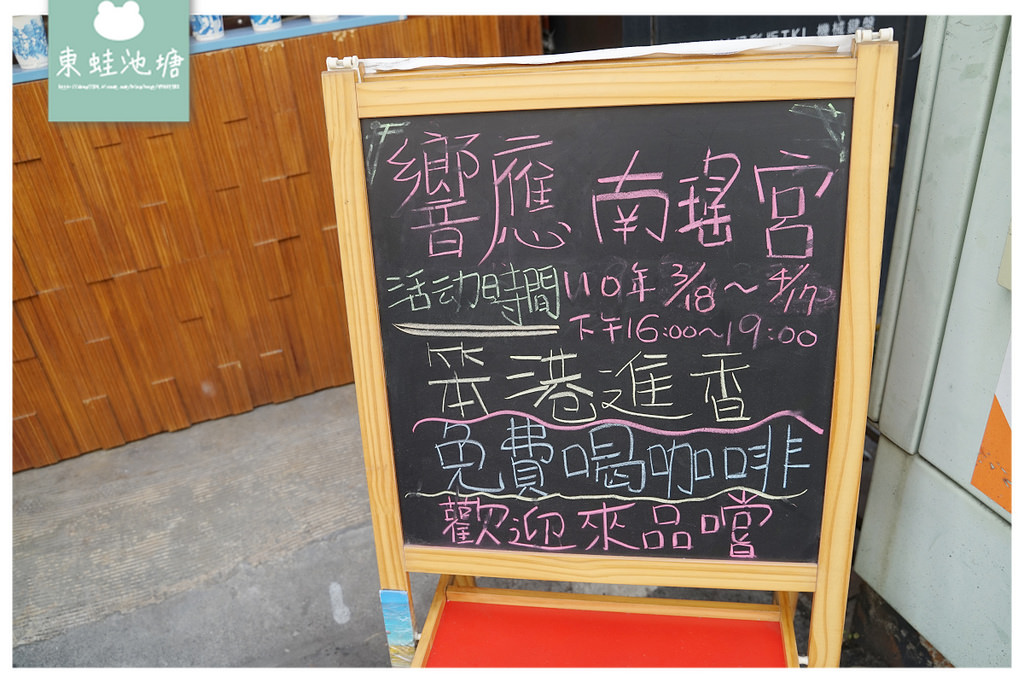 東蛙池塘
響應 南瑤宮
活动時間 110年 3/18～4/17
下午16:00～19:00
笨港進香
免費喝咖啡
歡迎來品嚐